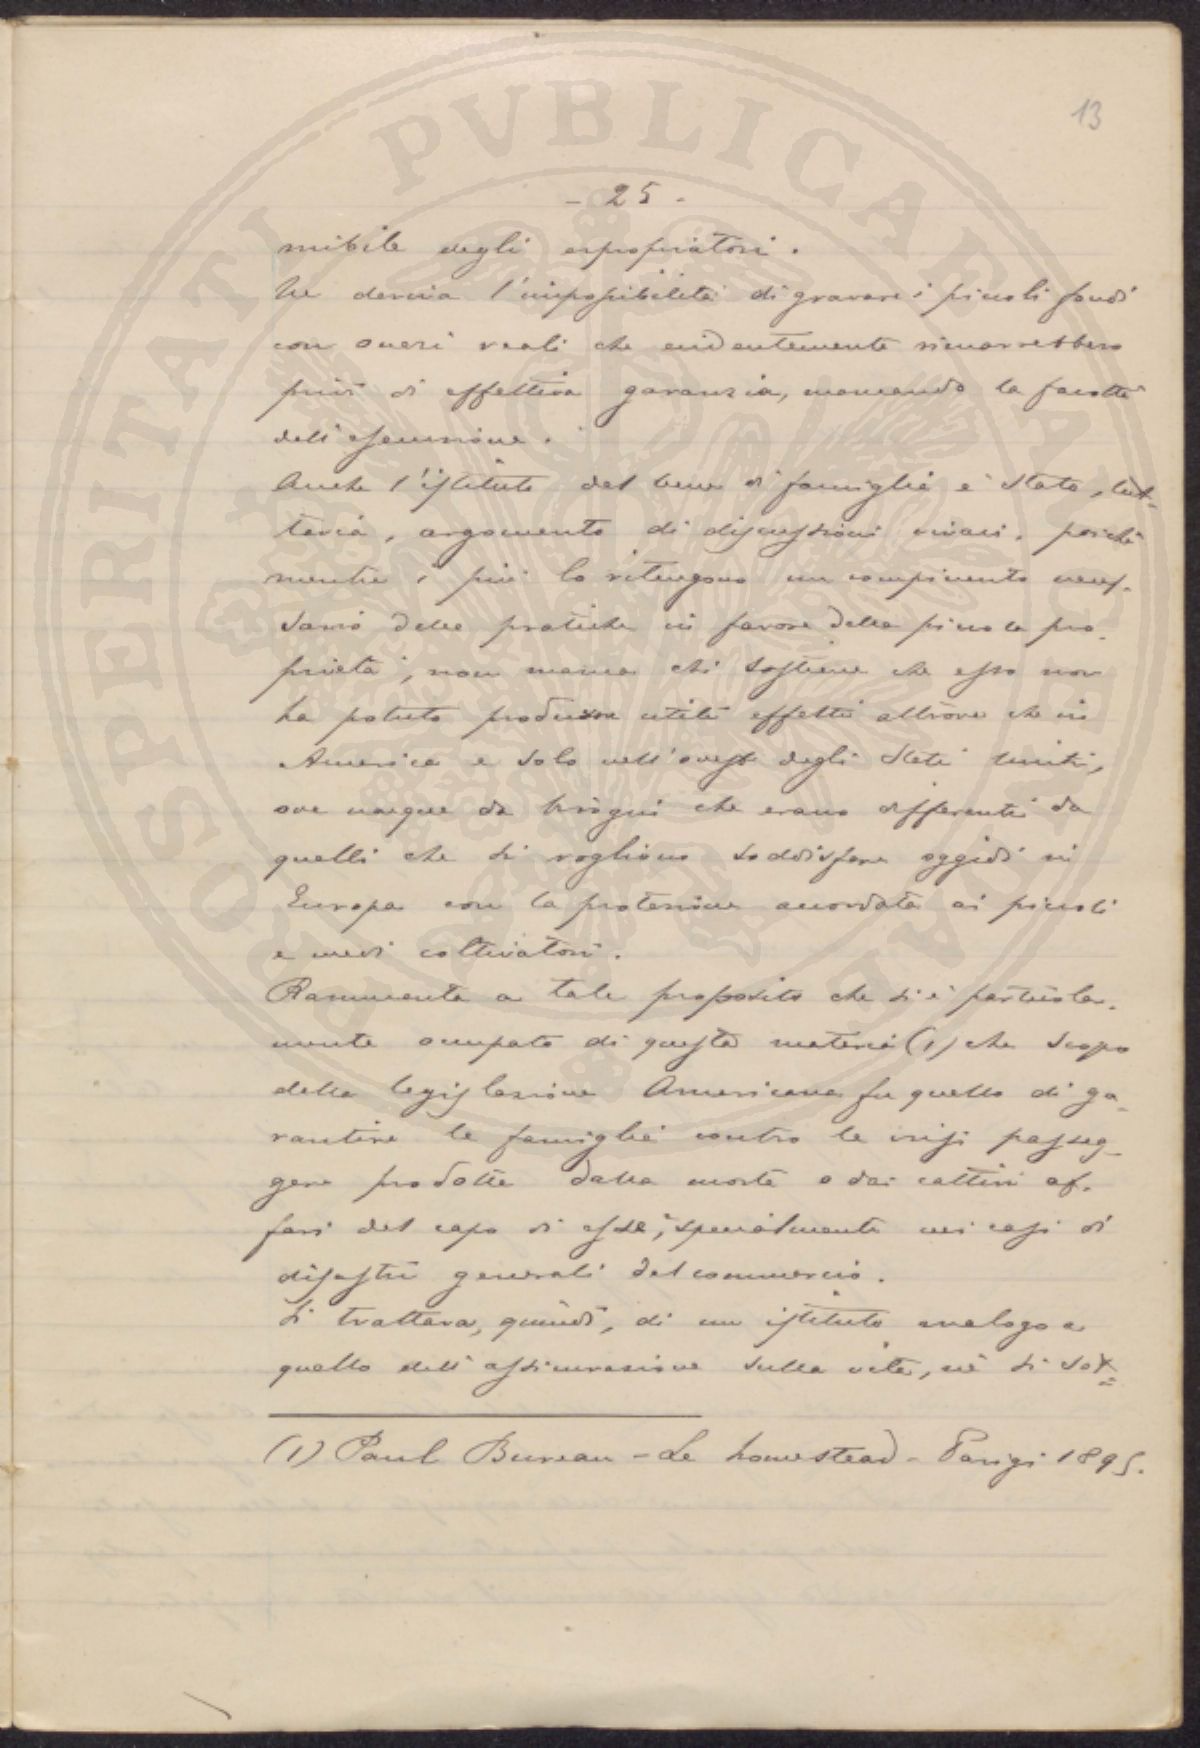 13
- 25 -
mibile degli espropriatori.
Ne deriva l'impossibilità di gravare i piccoli fondi
con oneri reali che evidentemente rimarrebbero
privi di effettiva garanzia, mancando la facoltà
dell'esecuzione.
Anche l'istituto del bene di famiglia è stato, tut-
tavia, argomento di discussioni vivaci, poichè
mentre i più lo ritengono un compimento neces-
sario delle pratiche in favore della piccola pro-
prietà, non manca chi sostiene che esso non
ha potuto produrre utili effetti altrove che in
America e solo nell'ovest degli Stati Uniti,
ove nacque da bisogni che erano differenti da
quelli che si vogliono soddisfare oggidì in
Europa con la protezione accordata ai piccoli
e medi coltivatori.
Rammenta a tale proposito che si è particolar-
mente occupato di questa materia (1) che scopo
della legislazione Americana fu quello di ga-
rantire le famiglie contro le crisi passeg-
gere prodotte dalla morte o dai cattivi af-
fari del capo di esse, specialmente nei casi di
disastri generali del commercio.
Si trattava, quindi, di un istituto analogo a
quello dell'assicurazione sulla vita, nè si sot=
(1) Paul Bureau - Le homestead - Parigi 1895.
PROSPERITATI PVBLICAE AVGENDAE